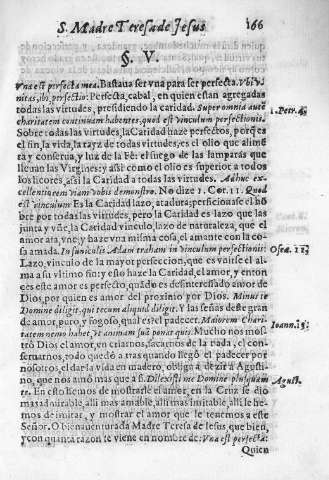 S. Madre Teresa de Jesus 166
§. V.
Vna est perfecta mea. Bastaua ser vna para ser perfecta. Vbi v-
nitas, ibi perfectio: Perfecta, cabal, en quien estan agregadas
todas las virtudes, presidiendo la caridad. Super omnia autē
charitatem continuam habentes, quod est vinculum perfectionis.
1. Petr. 4.
Sobre todas las virtudes, la Caridad haze perfectos, porq̃ es
el fin, la vida, la rayz de todas virtudes, es el olio que alimē
ta y conserua, y luz de la Fè: el fuego de las lamparas que
lleuan las Virgines: y assi como el olio es superior a todos
los licores, assi la Caridad a todas las virtudes. Adhuc ex-
cellentiorem viam vobis demonstro. No dize 1. Cor. 11. Quod
est vinculum Es la Caridad lazo, atadura; perficionase el hō
bre por todas las virtudes, pero la Caridad es lazo que las
junta y vñe, la Caridad vinculo, lazo de naturaleza, que el
amor ata, vne, y haze vna misma cosa, el amante con la co-
sa amada. In funiculis Adam traham in vinculum perfectionis:
Oseæ. 11.
Lazo, vinculo de la mayor perfeccion, que es vnirse el al-
ma a su vltimo fin: y esto haze la Caridad, el amor, y enton
ces este amor es perfecto, quādo es desinteressado amor de
Dios, por quien es amor del proximo por Dios. Minus te
Domine diligit, qui tecum aliquid diligit. Y las señas deste gran
de amor, puro, y fogoso, qual es? el padecer. Maiorem Charita-
tem nemo habet, vt animam suā ponat quis. Mucho nos mos-
Ioann. 15.
trò Dios el amor, en criarnos, sacarnos de la nada, el con-
seruarnos, todo quedò a tras quando llegò el padecer por
nosotros, el dar la vida en madero, obliga à dezir à Agusti-
no, que nos amò mas que a si. Dilexisti me Domine plusquam
te. En esto hemos de mostrarle el amor, en la Cruz se dio
Agust.
mas admirable, alli mas amable, alli mas imitable, alli le he-
mos de imitar, y mostrar el amor que le tenemos a este
Señor. O bienauenturada Madre Teresa de Iesus, que bien,
y con quanta razon te viene en nombre de: Vna est perfecta:
Quien